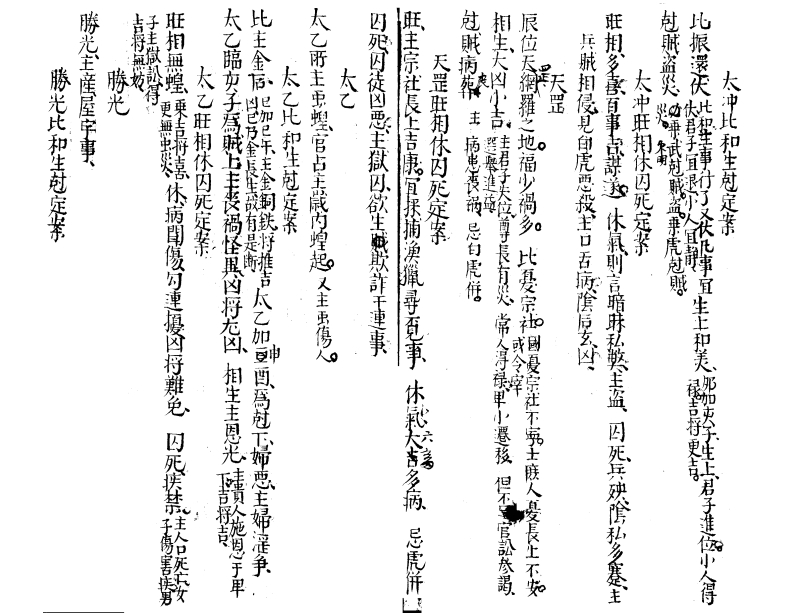 太冲比和生尅定案
比振還伏 比和生事行了又伏凡事宜 生上和美 那加亥子生上君子進位小人得
伏君子宜退小人宜靜 祿吉将更吉
尅賊盜災 幼乗武尅賊盜乗虎尅賊
災
太冲旺相休囚死定案
旺相多喜百事吉謀遂 休氣則言暗昧私弊主盜 囚死兵殃陰私多蹇主
兵賊相侵見白虎惡殺主口舌病陰后玄凶
天罡
辰位天網羅之地福少禍多 比憂宗社 國憂宗社不寧士庶人憂長上不安
或令宰
相生大凶小吉 主君子失位尊長有災常人得祿卑小遷移但不 官訟参謁
選舉進
尅賊病葬 主病患喪禍忌白虎併
天罡旺相休囚死定案
旺主宗社長上吉康宜採捕漁獵尋覓事 休氣大吉多病 忌虎併
小六
囚死囚徒凶惡主獄囚欲生賊欺詐干連事
太乙
太乙所主虫蝗官占主歲内蝗起 又主虫傷人
太乙比和生尅定案
比主金 巳加巳午主金銅鉄将推吉 太乙加申酉為尅下婦惡主婦淫争
凶巳乃金長生歲有是断
太乙臨亥子為賊上主丧禍怪異凶将尤凶 相生主恩光 主貴人施恩于卑
下吉将吉
太乙旺相休囚死定案
旺相無蝗 乗吉将喜 休病閙傷勾連擾凶将難免 囚死疾禁 主人口死亡女
更無虫災 子傷害疾男
子主獄訟得
吉将無妨
勝光
勝光主産屋宇事
勝光比和生尅定案